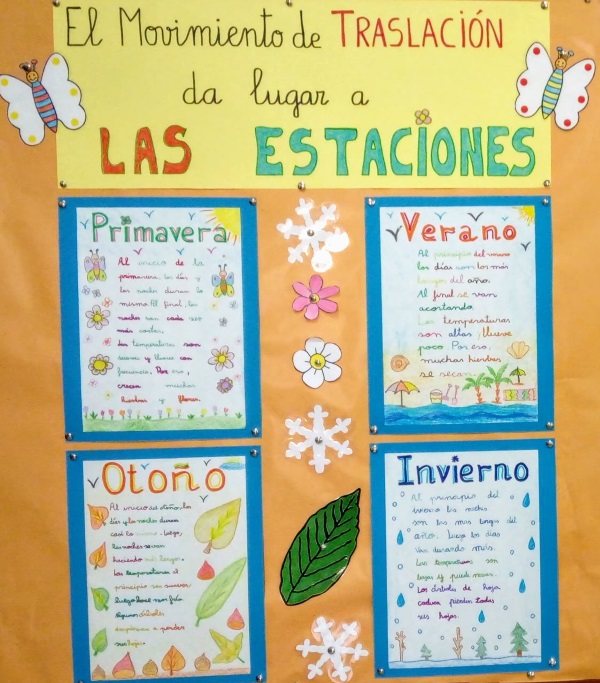 El Movimiento de TRASLACIÓN
da lugar a
LAS ESTACIONES
Primavera
Al inicio de la
primavera, los días y
las noches duran lo
mismo. Al final, las
noches son cada vez
más cortas.
Las temperaturas son
suaves y llueve con
frecuencia. Por eso,
crecen muchas
hierbas y flores.
Verano
Al principio del verano
los días son los más
largos del año.
Al final se van
acortando.
Las temperaturas
son altas, llueve
poco. Por eso,
muchas hierbas
se secan.
Otoño
Al inicio del otoño, los
días y las noches duran
casi lo mismo. Luego,
las noches se van
haciendo más largas.
Las temperaturas al
principio son suaves,
luego hace más frío.
Algunos árboles
empiezan a perder
sus hojas.
Invierno
Al principio del
invierno las noches
son las más largas del
año. Luego los días
van durando más.
Las temperaturas son
bajas y puede nevar.
Los árboles de hoja
caduca pierden todas
sus hojas.